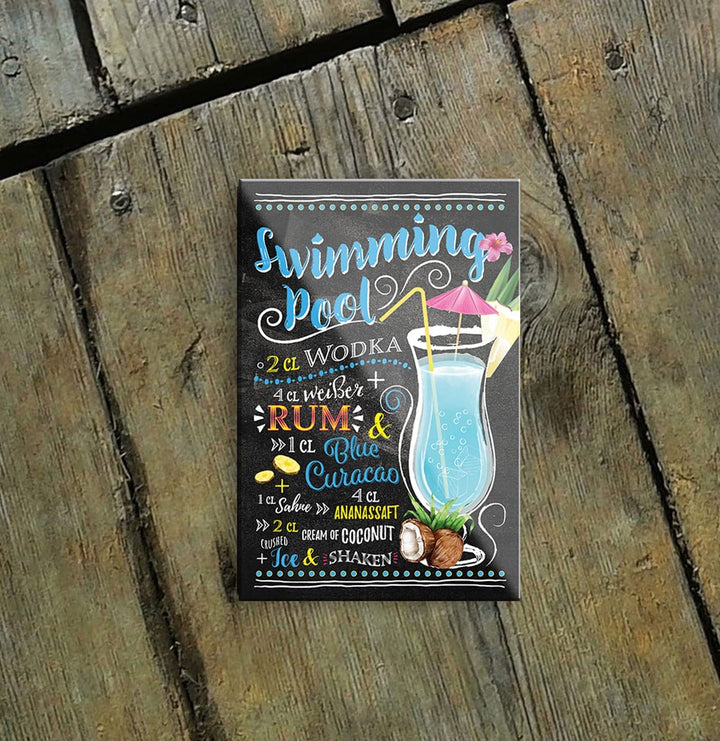 Swimming
Pool
2 CL WODKA
+
4 CL weißer
RUM &
»1 CL Blue
Curacao
+
1 CL Sahne » 4 CL
ANANASSAFT
» 2 CL CREAM OF COCONUT
+ CRUSHED Ice & SHAKEN